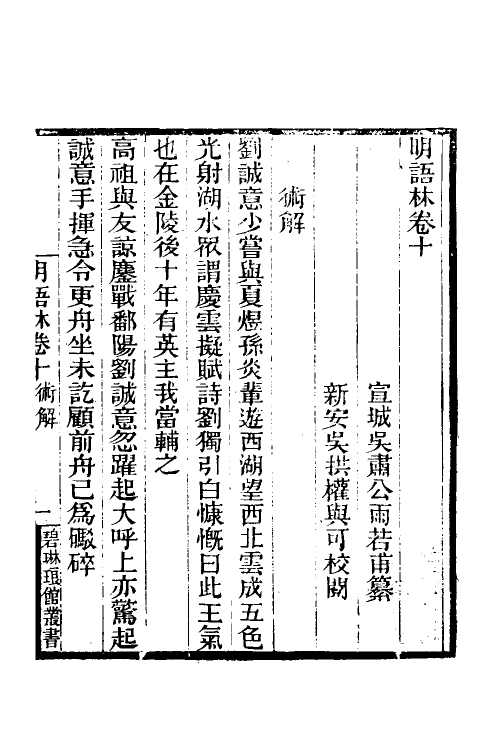 明語林卷十
宣城吳肅公雨若甫纂
新安吳拱權與可校閱
術解
劉誠意少嘗與夏煜孫炎輩遊西湖望西北雲成五色
光射湖水眾謂慶雲擬賦詩劉獨引白慷慨曰此王氣
也在金陵後十年有英主我當輔之
高祖與友諒鏖戰鄱陽劉誠意忽躍起大呼上亦驚起
誠意手揮急令更舟坐未訖顧前舟已爲礮碎
明語林卷十 術解 一 碧琳琅館叢書